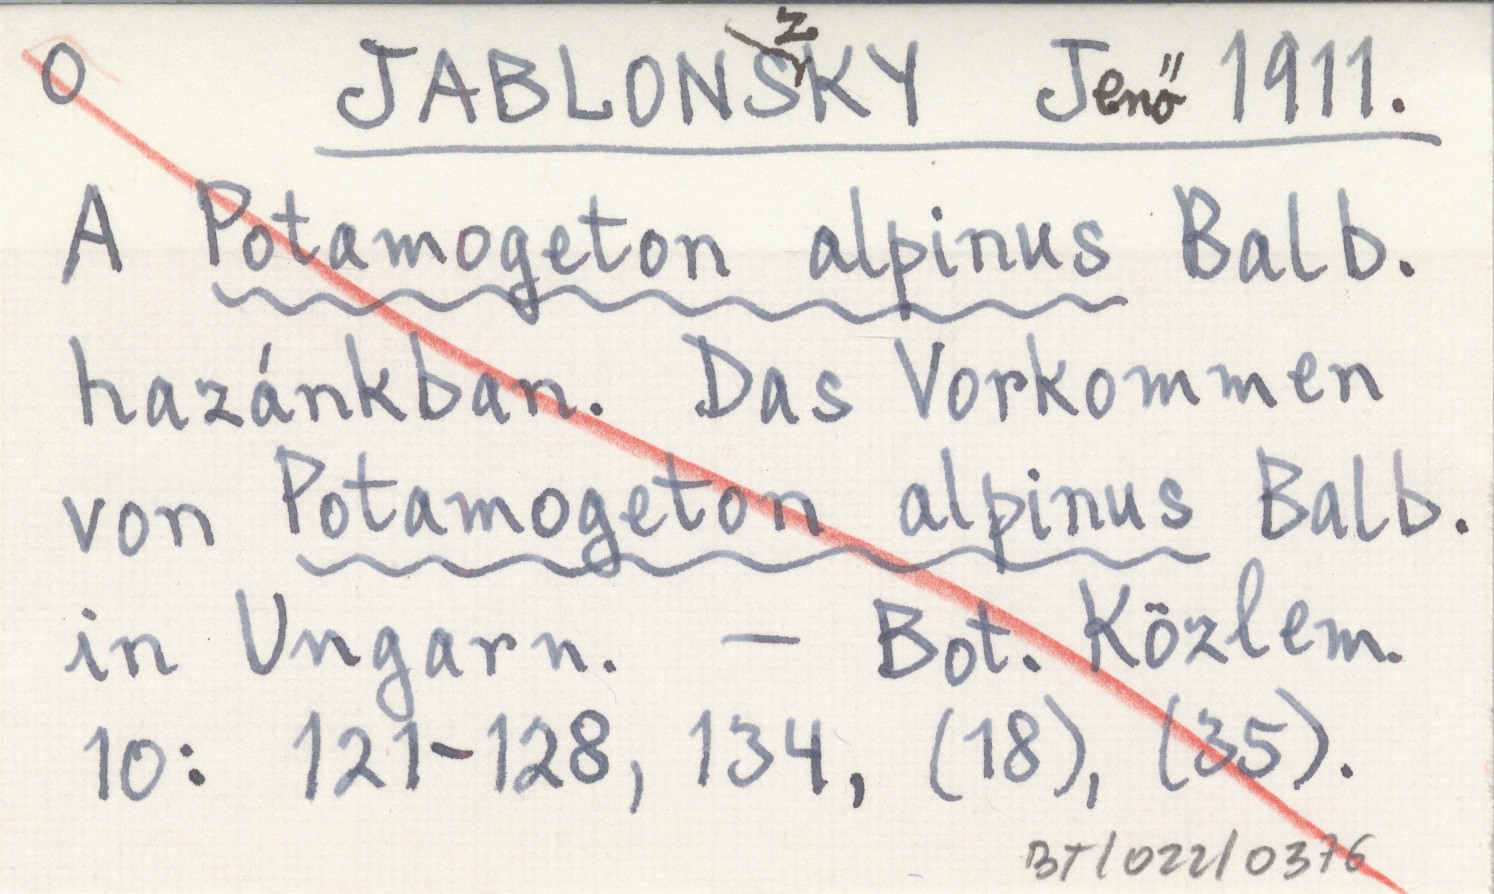 O JABLONSZKY Jenő 1911.
A Potamogeton alpinus Balb.
hazánkban. Das Vorkommen
von Potamogeton alpinus Balb.
in Ungarn. — Bot. Közlem.
10: 121-128, 134, (18), (35).
BT/022/0376